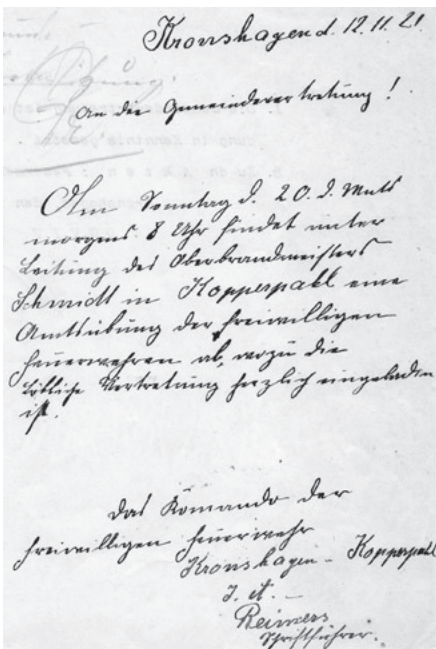 Kronshagen d. 12.11.21.
An die Gemeindevertretung!
Am Sonntag d. 20. d. Mnts
morgens 8 Uhr findet unter
Leitung des Oberbrandmeisters
Schmidt in Kopperpahl eine
Amtsübung der freiwilligen
Feuerwehren ab, wozu die
löbliche Vertretung herzlich eingeladen
ist.
Das Komando der
freiwilligen Feuerwehr
Kronshagen - Kopperpahl
I. A. -
Reimers
Schriftführer.